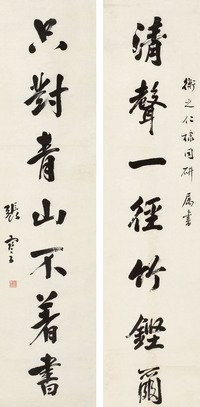 衡之仁棣同研 属書
清聲一徑竹鏗爾
只對青山不着書
張